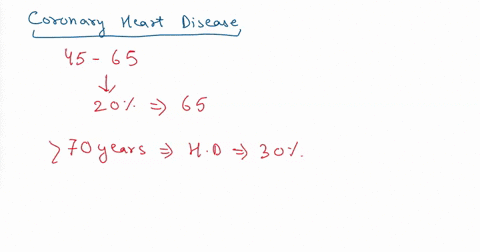 Coronary Heart Disease
45 - 65
↓
20% ⇒ 65
>70 years ⇒ H.D ⇒ 30%.